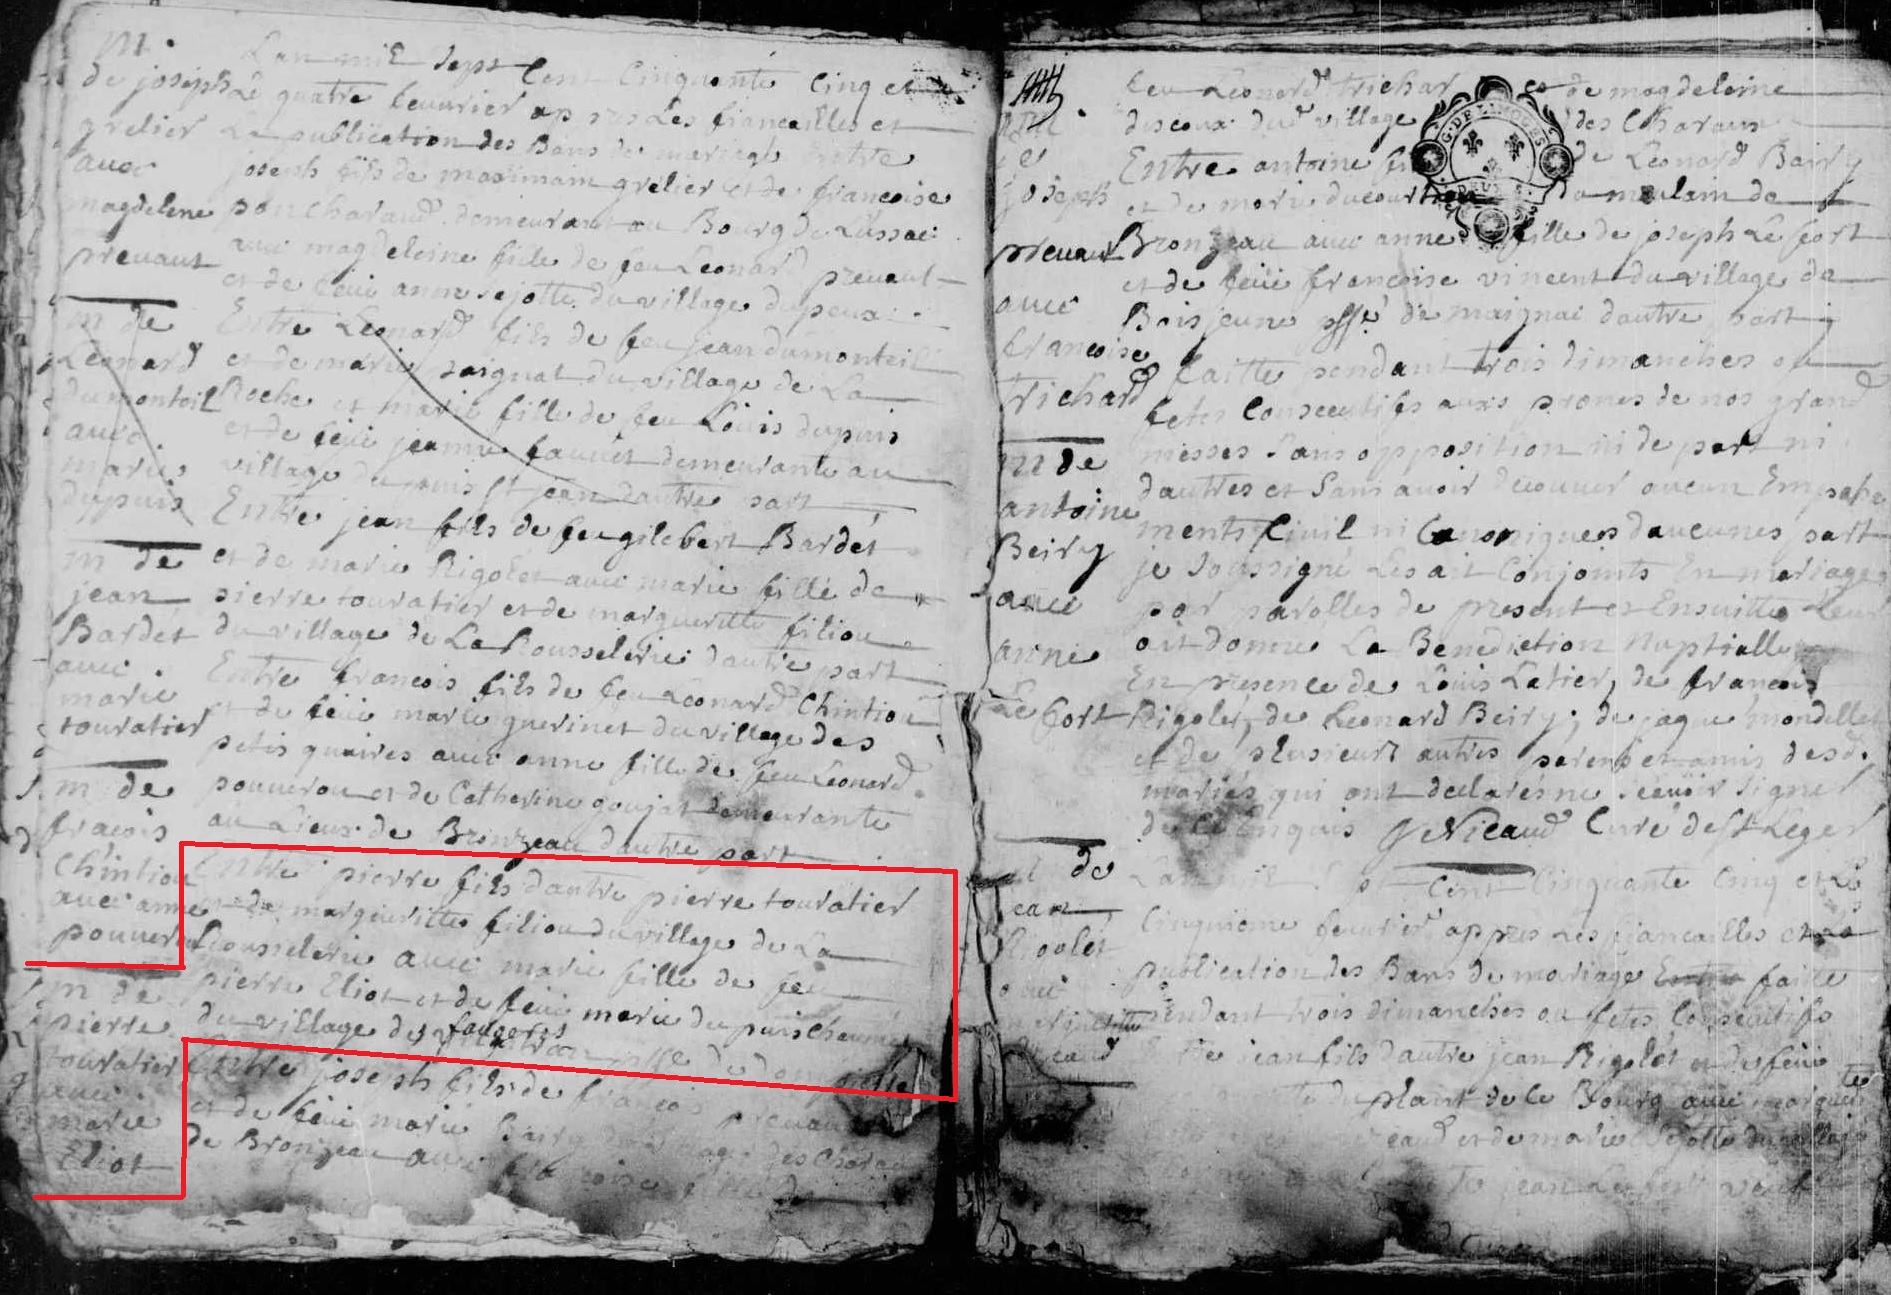 m.
de joseph
grelier
avec
magdelene
prevaut
L'an mil sept Cent Cinquante Cinq et
Le quatre feuvrier apres Les fiancailles et
La publication des Bans de mariage entre
joseph fils de maximain grelier et de francoise
poncharaud demeurant au Bourg de Lussac
avec magdeleine fille de feu Leonard prevaut
et de feüe anne sejotte du village du peux
m de
Leonard
dumonteil
avec
marie
dupuis
Entre Leonard fils de feu jean dumonteil
et de marie saignat du village de La
Roche et marie fille de feu Loüis dupuis
et de feüe jeanne faucet demeurante au
village du puis St jean dautre part
m de
jean
Bardet
avec
marie
touratier
Entre jean fils de feu gilebert Bardet
et de marie Rigolet avec marie fille de
pierre touratier et de margueritte filiou
du village de La Rousselerie dautre part
m de
fracois
Chintiou
avec anne
pouverou
Entre francois fils de feu Leonard Chintiou
et de feüe marie guerinet du village des
petis quaires avec anne fille de feu Leonard
pouverou et de Catherine goujat demeurante
au Lieux de Bronzeau dautre part
m de
pierre
touratier
avec
marie
Eliot
Entre pierre fils dautre pierre touratier
et de margueritte filiou du village de La
Rousselerie avec marie fille de feu
pierre Eliot et de feüe marie du puischaumet
du village de fougeres
Entre joseph fils de francois prevaut
et de feüe marie Bairy des Charaux
de Bronzeau avec francoise fille de
m
de
joseph
prevaut
avec
francoise
trichard
feu Leonard trichar et de magdeleine
descoux dud village des Charaux
Entre antoine de Leonard Bairy
et de marie ducourtioux du moulain de
Bronzeau avec anne fille de joseph Le fort
et de feüe francoise vincent du village de
Bois jeune psse de maignac dautre part
m de
antoine
Beiry
avec
anne
Le fort
faitte pendant trois dimanches ou
fetes Consecutifs aux prones de nos grand
messes Sans opposition ni de part ni
dautres et Sans avoir decouver aucun Empeche
ments Civil ni Canoniques daucunes part
je Soussigné Les ait Conjoints En mariage
par parolles de present et Ensuitte Leur
ait donne La Benediction Nuptialle
En presence de Loüis Latier, de francois
Rigolet, de Leonard Beiry, de jaque mondellet
et de plusieurs autres parens et amis desd.
mariés qui ont declarés ne scavoir signer
de ce Enquis Nicaud Curé de St Leger
m de
jean
Rigolet
avec
L'an mil sept Cent Cinquante Cinq et Le
Cinquieme feuvrier appres Les fiancailles et La
publication des Bans de mariage Entre faite
pendant trois dimanches ou fetes Consecutifs
Entre jean fils dautre jean Rigolet et de feüe
du plaint de Ce Bourg avec marguerite
et de marie Sejotte du village
jean
G. DE LIMOGES
DEUX S.